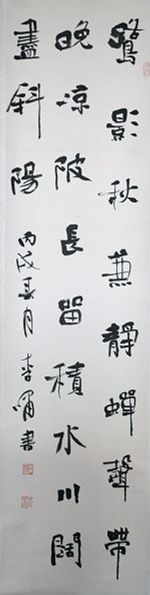 鷺影秋蒹靜蟬聲帶
晚涼陂長留積水川闊
盡斜陽
丙戌春月李嘯書